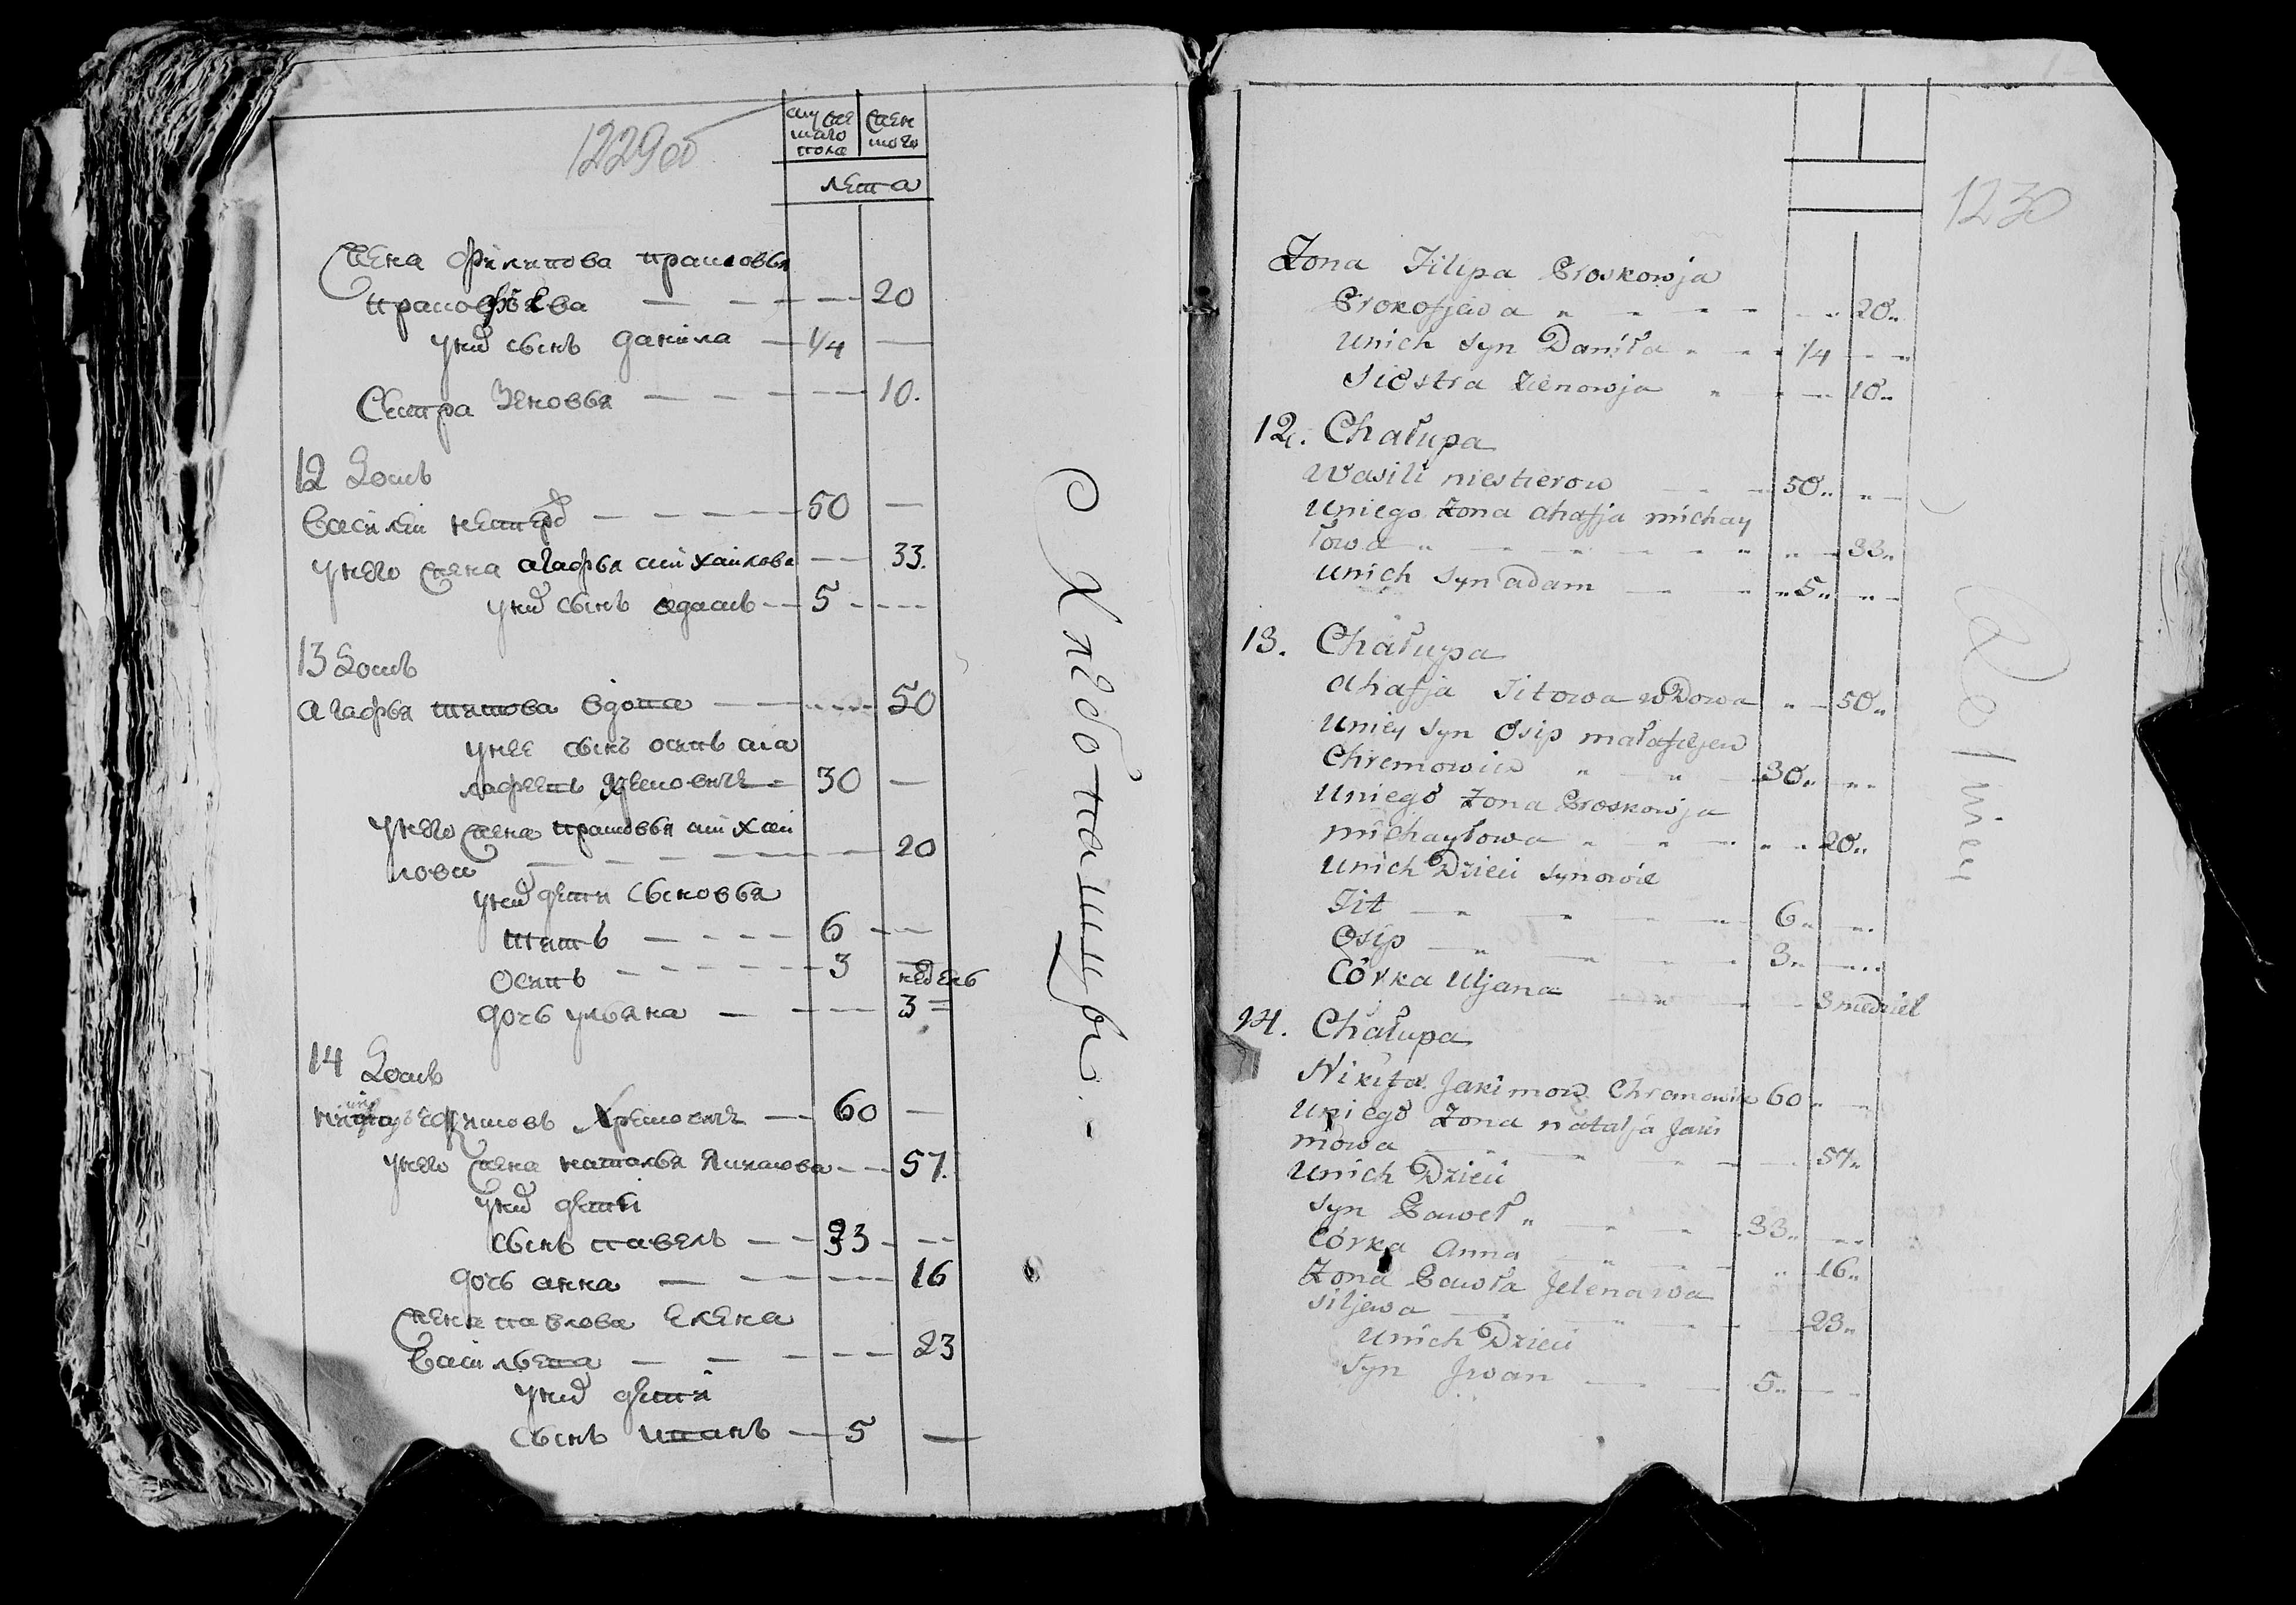 1229об
мужескаго пола
женского
лета
Жена Филипова прасковья
прасофьева — — — — 20
у них сынъ данила — 1/4 —
Сестра Зеновья — — — — 10.
12 Домъ
Василей нестеров — — — — 50 —
у него жена агафья михаилова — — 33.
у них сынъ адамъ — — 5 - - - -
13 Домъ
агафья титова вдова — — - - - - 50
у нее сынъ осипъ ма
лафеевъ Хремовичъ — 30 —
у него жена прасковья михаи
лова — — — — — — 20
у них дети Сыновья
титъ — - - - - 6 — —
Осипъ - - - - - - 3 —
недель
дочь ульяна — - - - - 3 =
14 Домъ
никита Ефимовъ Хремовичъ — 60 —
у него жена наталья Якимова — — 57.
у них дети
сынъ павелъ — — 33 - - -
дочь анна — — - - - - 16
жена павлова Елена
Васильева — — — - - 23
у них дети
сынъ иванъ — 5 —
С Хлеботаицы.
1230
Żona Filipa Proskowja
Prokofjewa „ - - - - „ 20„
unich syn Daniła „ - - 1/4 - - „
Siostra Zienowja „ - - 10„
12. Chałupa
Wasili niestierow — - - 50„ „ -
uniego Żona ahafja michay
łowa „ - - - - - „ „ - 33„
unich syn adam — - „ „ 5„ „ -
13. Chałupa
ahafja Titowa wdowa „ - 50„
uniey syn Osip małafiejew
Chremowicz „ „ - 30„ „ -
uniego Żona Proskowja
michayłowa „ - „ - „ - 20„
unich Dzieci synowie
Tit — „ - - - 6„ - „
Osip — „ - - - 3„ - „ „
Córka Uljana — „ - - 3 niedziel
14. Chałupa
Nikita Jakimow Chromowicz 60 „ -
uniego Żona natalja Jaki
mowa — - - - - - 57„
unich Dzieci
syn Paweł „ - - - 33„ - „
Córka Anna — „ - - „ 16„
Żona Pawła Jelena wa
siljewa — - „ - - - 23„
unich Dzieci
syn Jwan — - 5„ - -